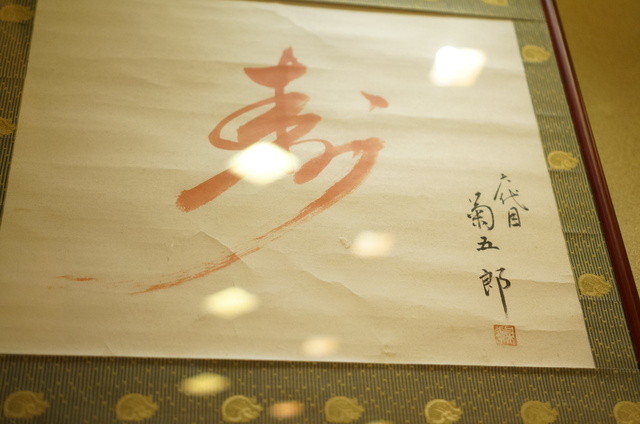 寿
六代目
菊五郎